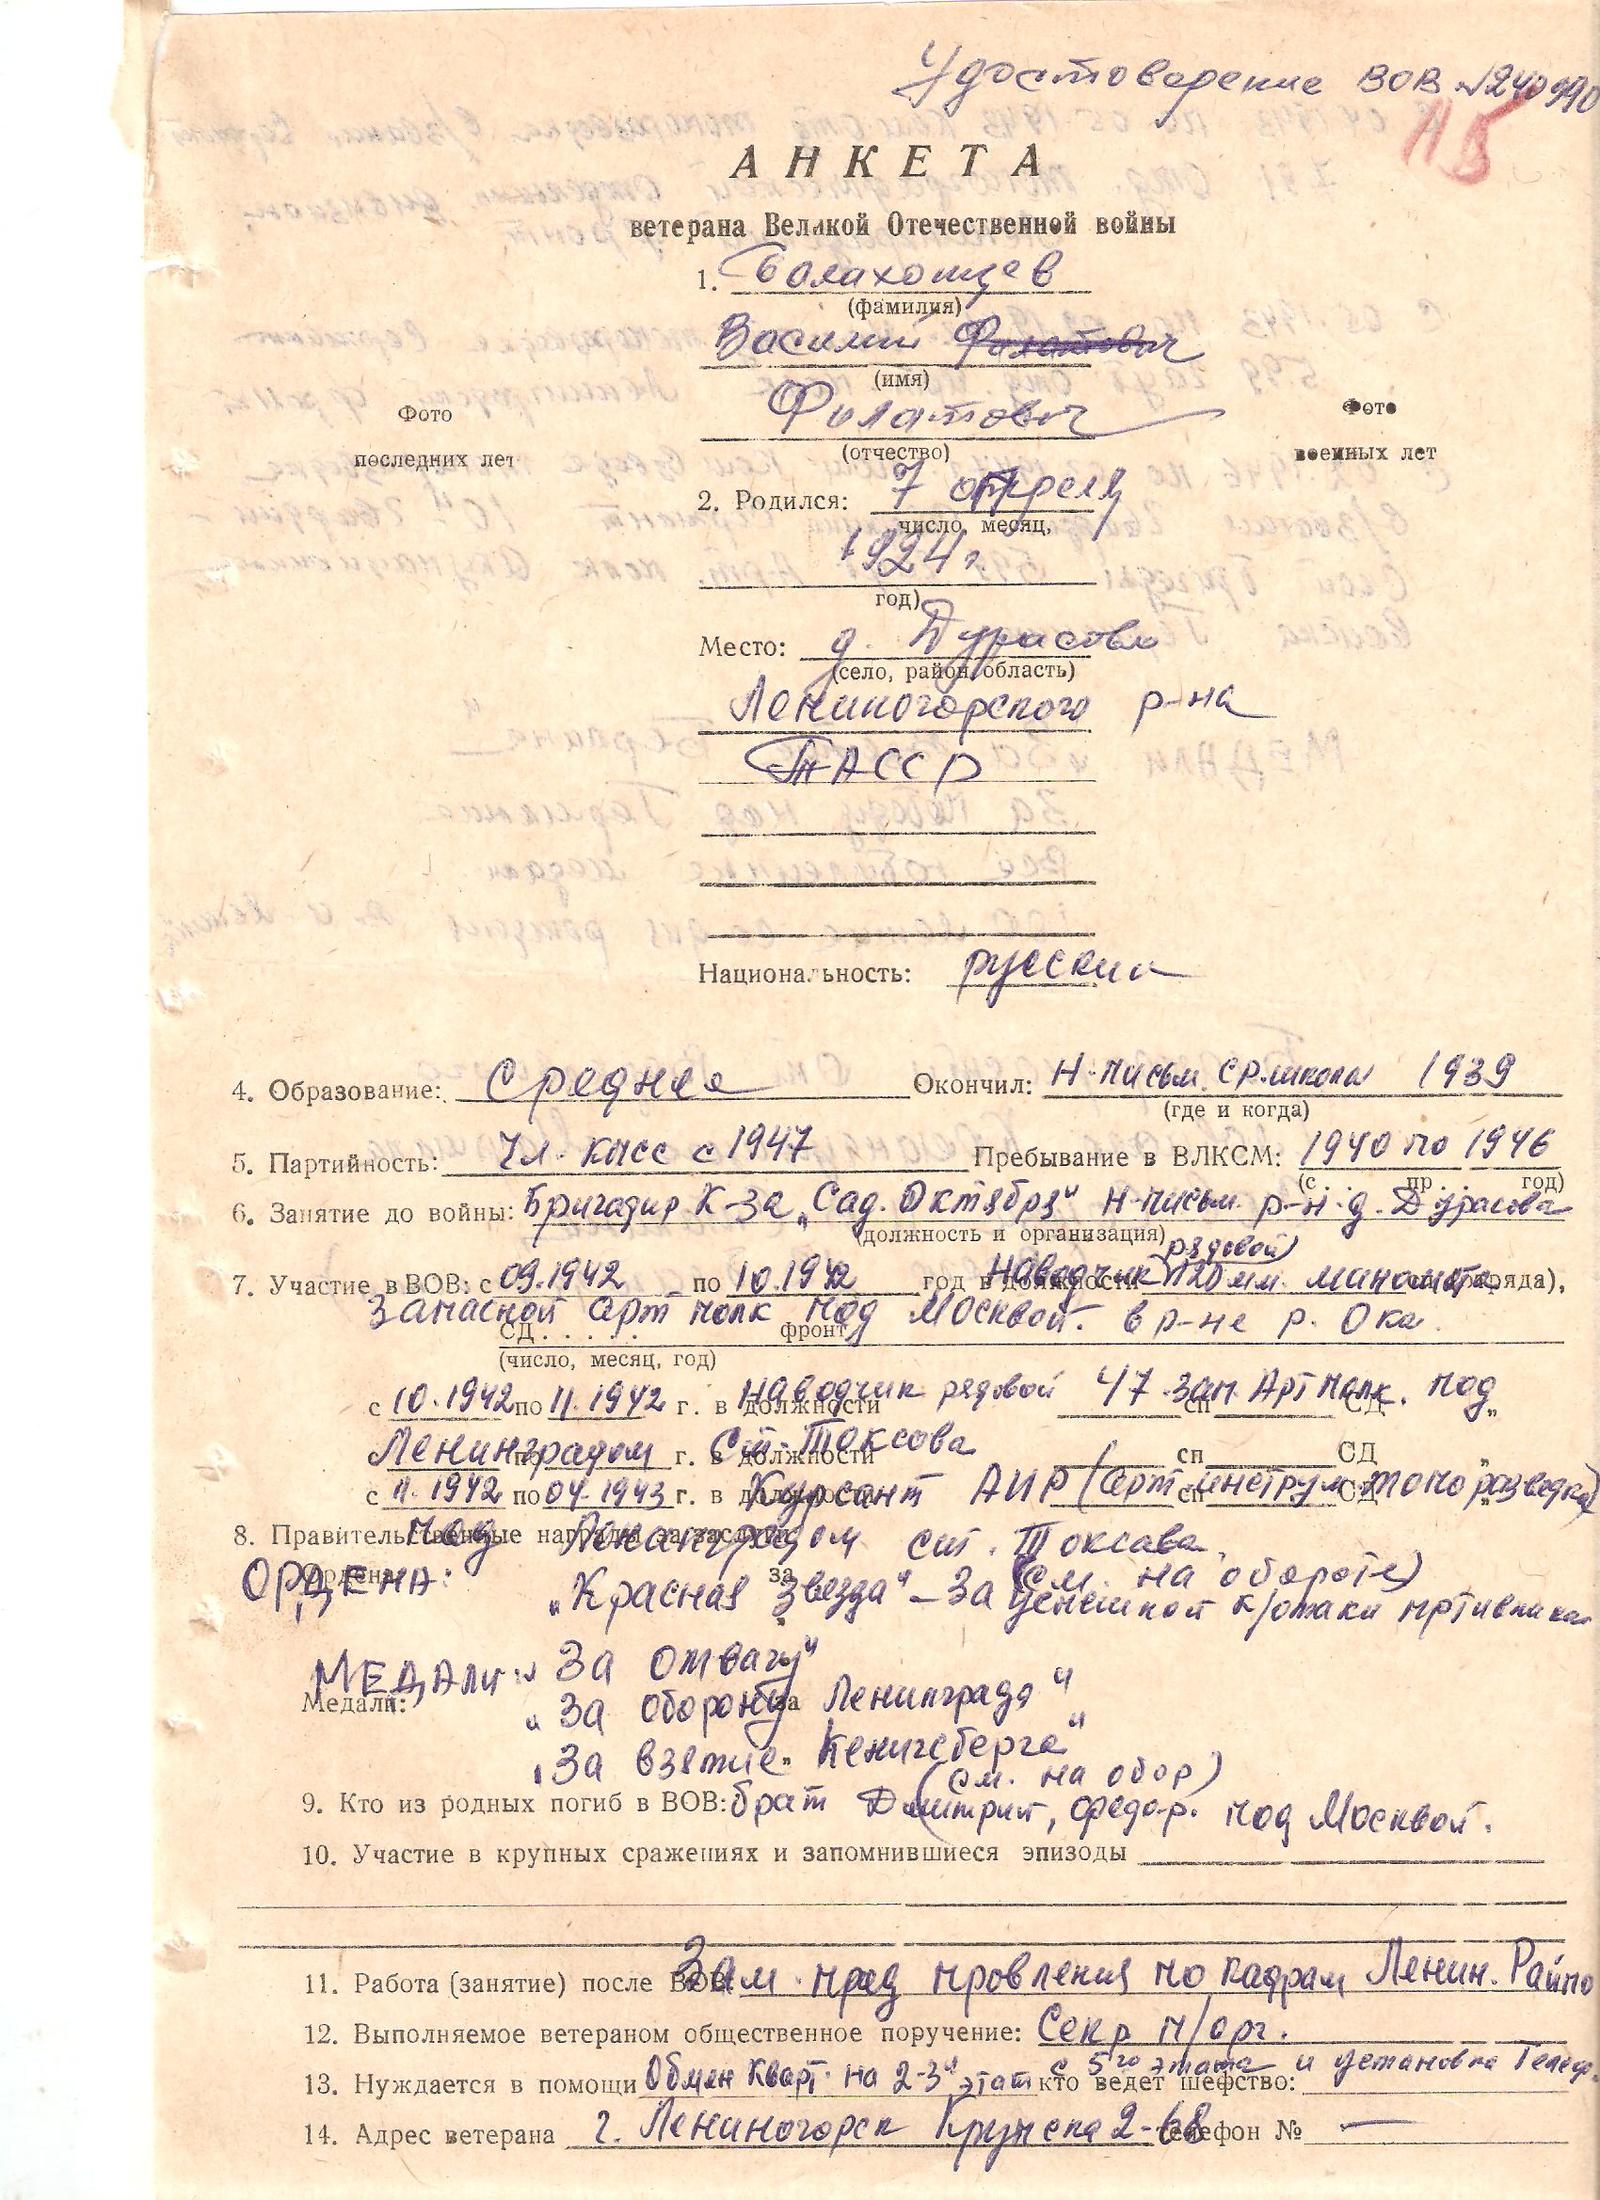 Удостоверение ВОВ №240990
115
АНКЕТА
ветерана Великой Отечественной войны
1. Балахонцев
(фамилия)
Василий Филатович
(имя)
Фото
последних лет
Филатович
(отчество)
Фото
военных лет
2. Родился: 7 апреля
число, месяц,
1924 г
год)
Место: д. Дурасово
(село, район, область)
Лениногорского р-на
ТАССР
Национальность: русский
4. Образование: Среднее Окончил: Н-письм. ср.школа 1939
(где и когда)
5. Партийность: Чл. КПСС с 1947 Пребывание в ВЛКСМ: 1940 по 1946
(с . . . пр . . год)
6. Занятие до войны: Бригадир К-за „Сад. Октября" Н-письм. р-н. д. Дурасова
(должность и организация)
рядовой
7. Участие в ВОВ: с 09.1942 по 10.1942 год в должности Наводчик 120 мм. миномета
Запасной Арт полк под Москвой. в р-не р. Ока.
СД . . . . . фронт
(число, месяц, год)
с 10.1942 по 11.1942 г. в должности Наводчик рядовой 47 зап. Арт полк. под сп СД „
Ленинградом по г. в должности Ст. Токсова сп СД „
с 11.1942 по 04.1943 г. в должности Курсант АИР (Арт-инструм. топоразведка) сп СД
8. Правительственные награды за заслуги: под Ленанградом ст. Токсава.
(см. на обороте)
Ордена: за
ОРДЕНА: „Красная Звезда" – За успешной к/атаки пртивника
МЕДАЛИ: „За отвагу"
Медали: за
„За оборону Ленинграда"
„За взятие Кенигсберга"
(см. на обор)
9. Кто из родных погиб в ВОВ: брат Дмитрий, Федор. под Москвой.
10. Участие в крупных сражениях и запомнившиеся эпизоды
11. Работа (занятие) после ВОВ: Зам. пред провления по кадрам Ленин. Райпо
12. Выполняемое ветераном общественное поручение: Секр п/орг.
13. Нуждается в помощи Обмен Кварт. на 2-3й этаж с 5го этажа и установка Телеф.
кто ведет шефство:
14. Адрес ветерана г. Лениногорск Крупска 2-68 телефон № —